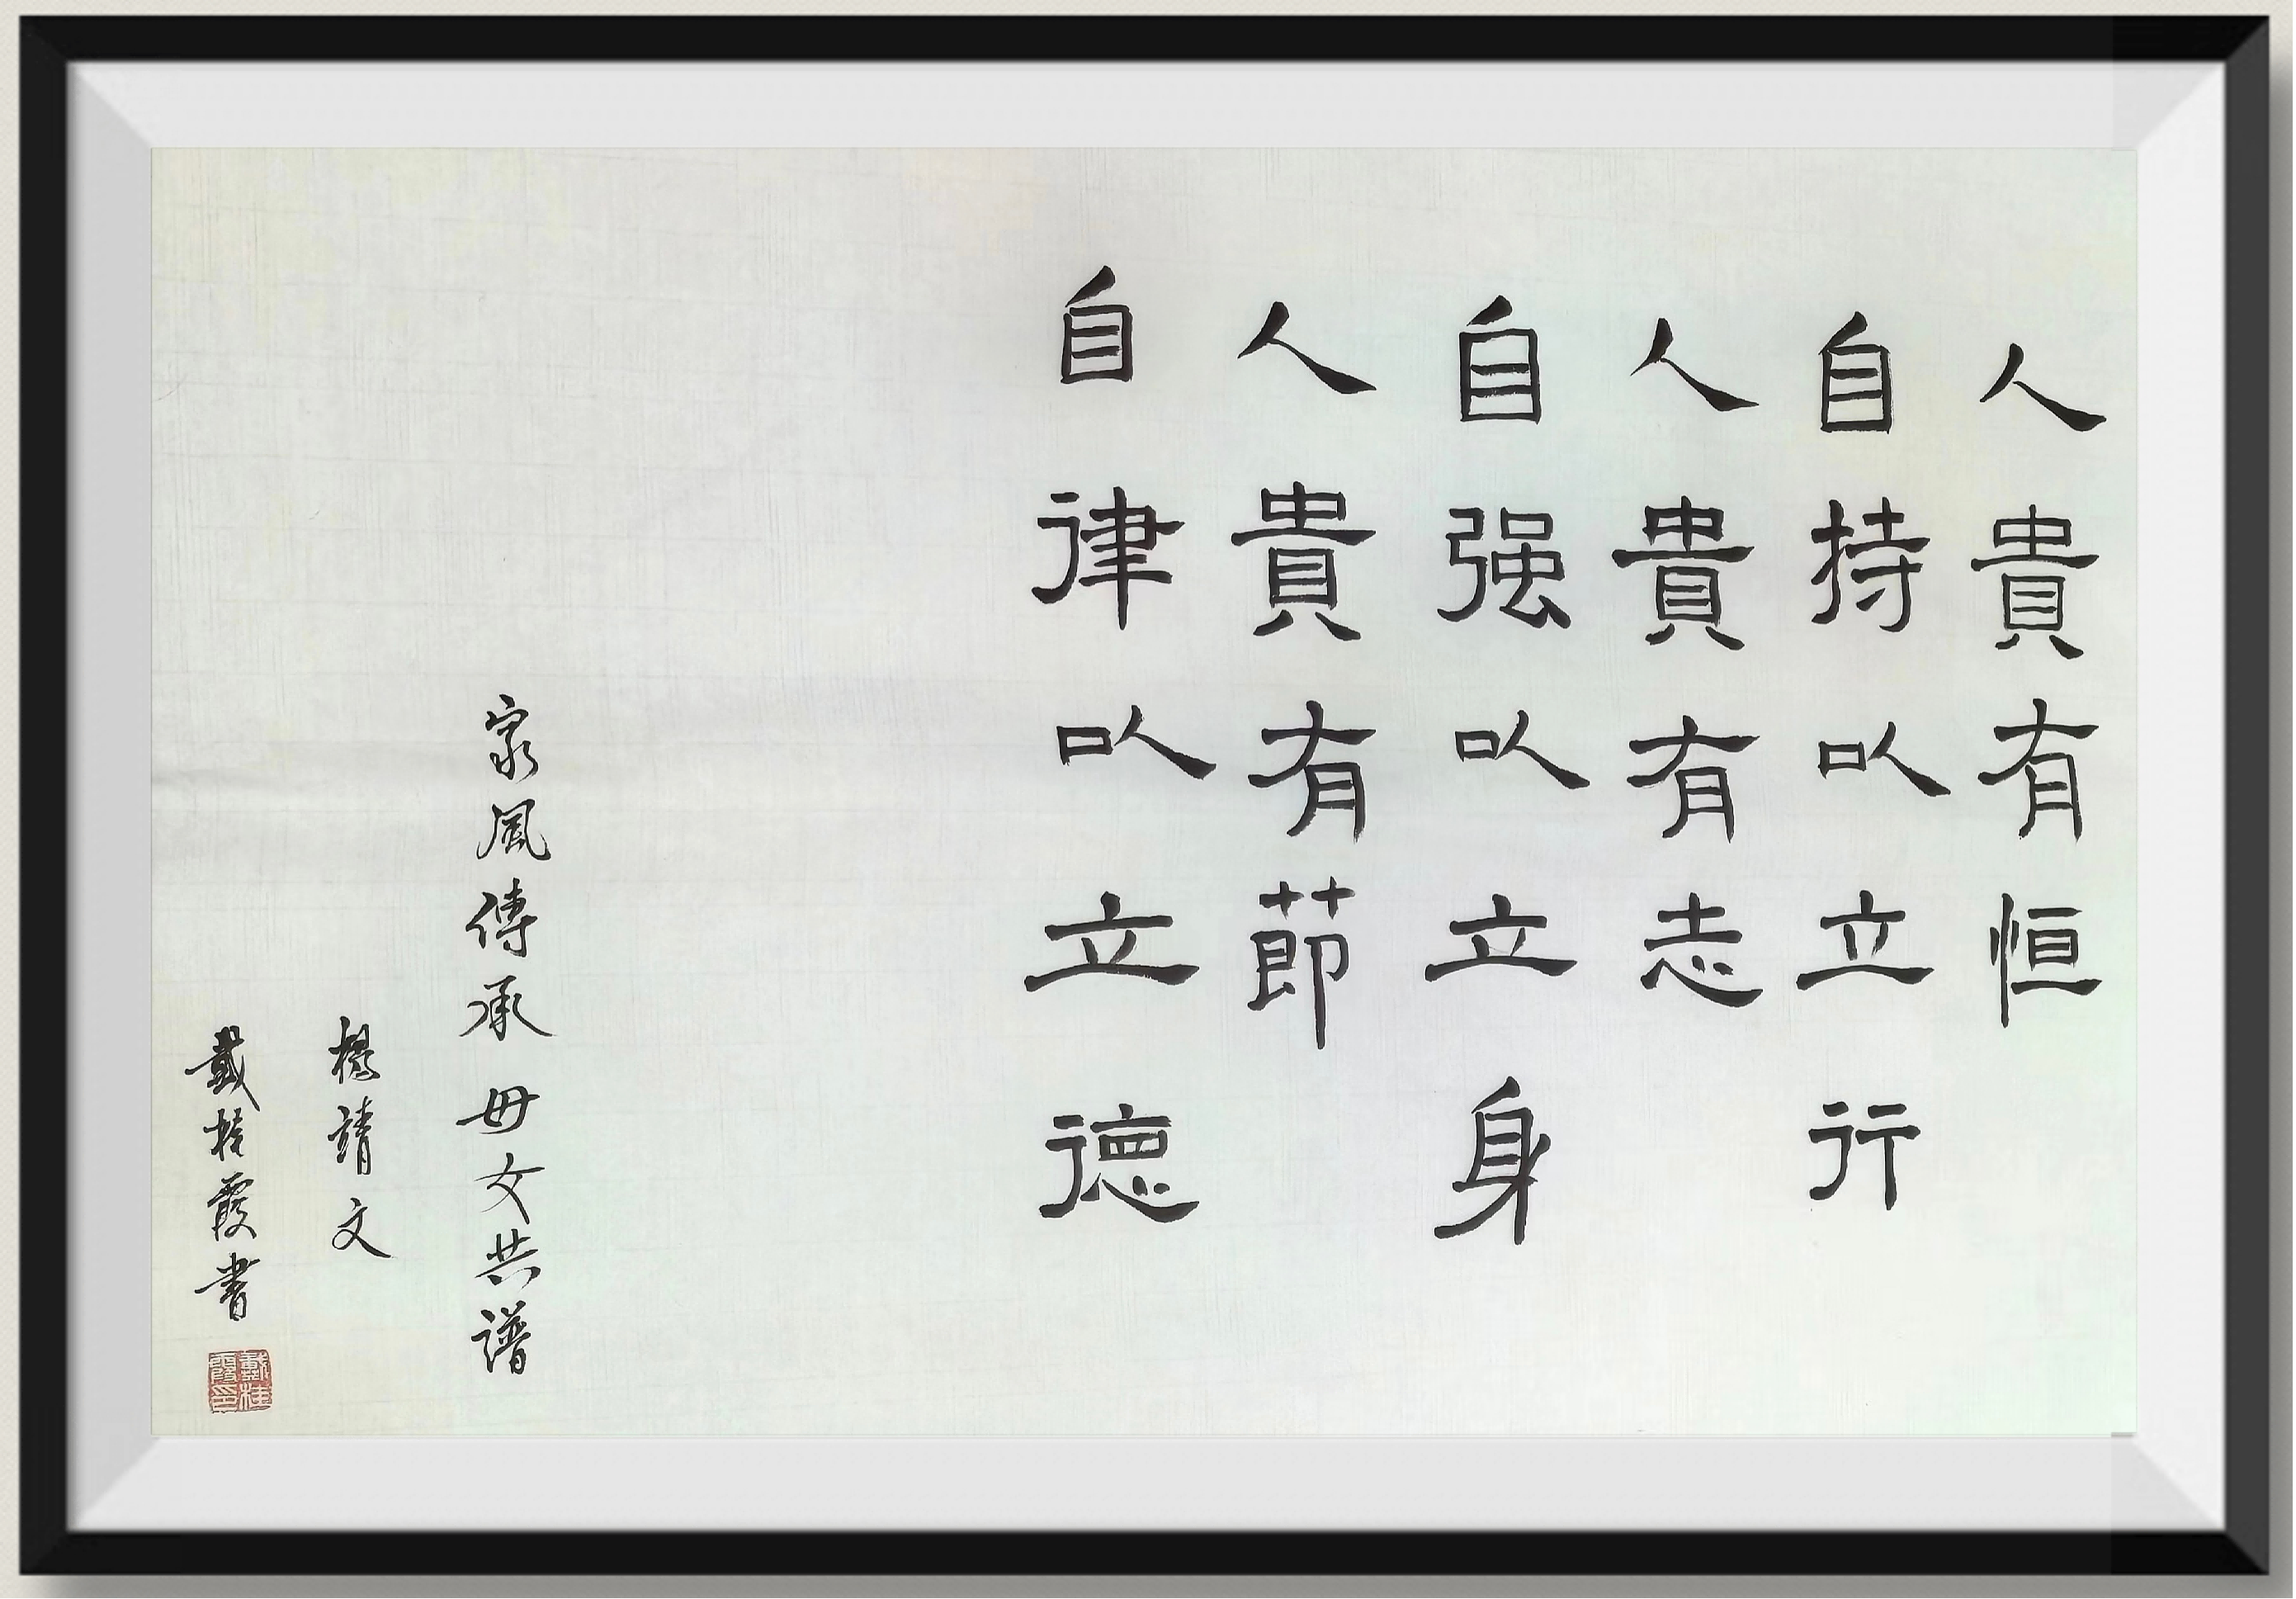 人貴有恒
自持以立行
人貴有志
自强以立身
人貴有節
自律以立德
家風傳承母女共譜
楊靖文
戴桂霞書
戴桂霞印